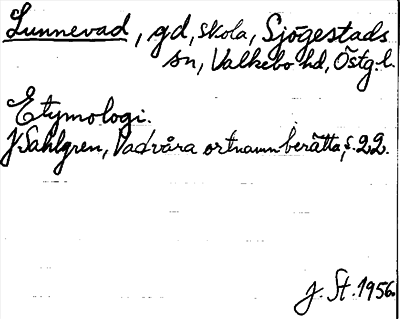 Lunnevad, gd, skola, Sjögestads
sn, Valkebo hd, Östg.l.
Etymologi.
J Sahlgren, Vad våra ortnamn berätta, s. 22.
J. St. 1956.